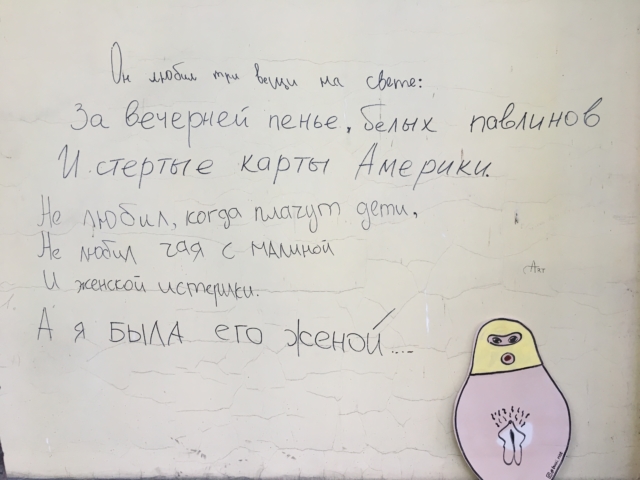 Он любил три вещи на свете:
За вечерней пенье, белых павлинов
И стертые карты Америки.
Не любил, когда плачут дети,
Не любил чая с малиной
И женской истерики.
А я была его женой....